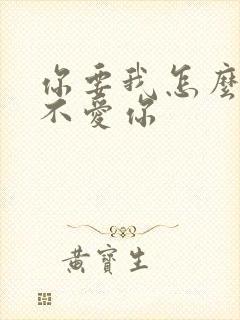 你要我怎麼
不愛你
黃寶生